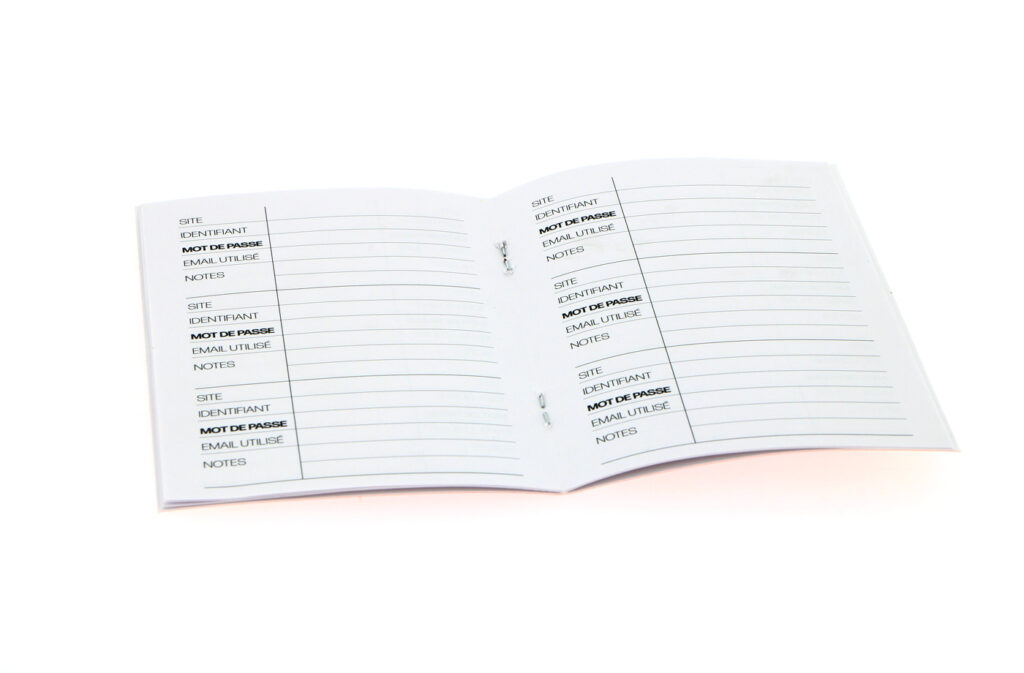 SITE
IDENTIFIANT
MOT DE PASSE
EMAIL UTILISÉ
NOTES
SITE
IDENTIFIANT
MOT DE PASSE
EMAIL UTILISÉ
NOTES
SITE
IDENTIFIANT
MOT DE PASSE
EMAIL UTILISÉ
NOTES
SITE
IDENTIFIANT
MOT DE PASSE
EMAIL UTILISÉ
NOTES
SITE
IDENTIFIANT
MOT DE PASSE
EMAIL UTILISÉ
NOTES
SITE
IDENTIFIANT
MOT DE PASSE
EMAIL UTILISÉ
NOTES